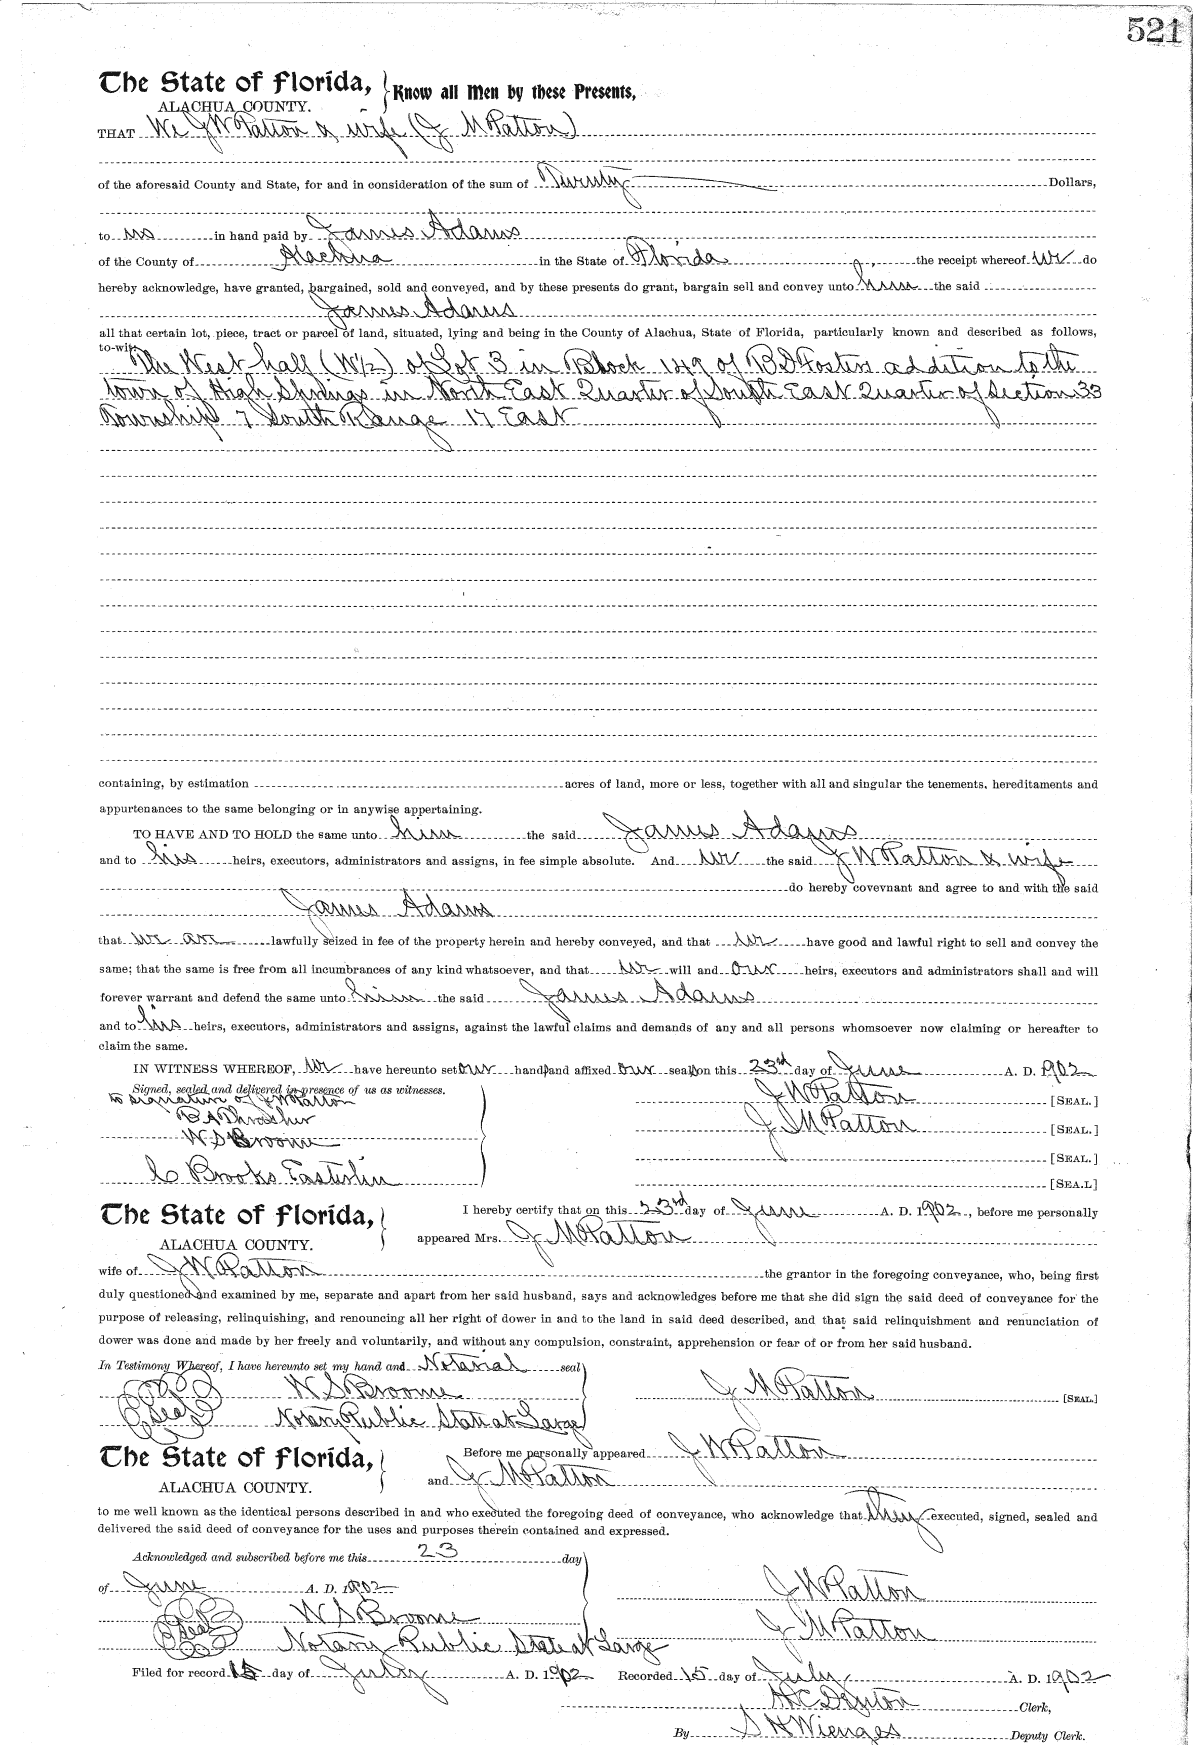 521
The State of Florida, Know all Men by these Presents,
ALACHUA COUNTY.
THAT We J W Patton & wife (J M Patton)
of the aforesaid County and State, for and in consideration of the sum of Twenty Dollars,
to us in hand paid by James Adams
of the County of Alachua in the State of Florida the receipt whereof we do
hereby acknowledge, have granted, bargained, sold and conveyed, and by these presents do grant, bargain sell and convey unto him the said
James Adams
all that certain lot, piece, tract or parcel of land, situated, lying and being in the County of Alachua, State of Florida, particularly known and described as follows,
to-wit:
The West half (W/2) of Lot 3 in Block 149 of B D Fosters addition to the
town of High Springs in North East Quarter of South East Quarter of Section 33
Township 7 South Range 17 East
containing, by estimation acres of land, more or less, together with all and singular the tenements, hereditaments and
appurtenances to the same belonging or in anywise appertaining.
TO HAVE AND TO HOLD the same unto him the said James Adams
and to his heirs, executors, administrators and assigns, in fee simple absolute. And we the said J W Patton & wife
do hereby covevnant and agree to and with the said
James Adams
that we are lawfully seized in fee of the property herein and hereby conveyed, and that we have good and lawful right to sell and convey the
same; that the same is free from all incumbrances of any kind whatsoever, and that we will and our heirs, executors and administrators shall and will
forever warrant and defend the same unto him the said James Adams
and to his heirs, executors, administrators and assigns, against the lawful claims and demands of any and all persons whomsoever now claiming or hereafter to
claim the same.
IN WITNESS WHEREOF, we have hereunto set our hands and affixed our seals on this 23rd day of June A. D. 1902
Signed, sealed and delivered in presence of us as witnesses. J W Patton [SEAL.]
to signation of J W Patton
B A Thrasher J M Patton [SEAL.]
W S Broome [SEAL.]
C Brooks Easterlin [SEA.L]
The State of Florida, I hereby certify that on this 23rd day of June A. D. 1902, before me personally
ALACHUA COUNTY. appeared Mrs. J M Patton
wife of J W Patton the grantor in the foregoing conveyance, who, being first
duly questioned and examined by me, separate and apart from her said husband, says and acknowledges before me that she did sign the said deed of conveyance for the
purpose of releasing, relinquishing, and renouncing all her right of dower in and to the land in said deed described, and that said relinquishment and renunciation of
dower was done and made by her freely and voluntarily, and without any compulsion, constraint, apprehension or fear of or from her said husband.
In Testimony Whereof, I have hereunto set my hand and Notarial seal
W S Broome J M Patton [SEAL.]
Seal Notary Public State at Large
The State of Florida, Before me personally appeared J W Patton
ALACHUA COUNTY. and J M Patton
to me well known as the identical persons described in and who executed the foregoing deed of conveyance, who acknowledge that they executed, signed, sealed and
delivered the said deed of conveyance for the uses and purposes therein contained and expressed.
Acknowledged and subscribed before me this 23 day
of June A. D. 1902 J W Patton
W S Broome J M Patton
Seal Notary Public State at Large
Filed for record 15 day of July A. D. 1902 Recorded 15 day of July A. D. 1902
H C Denton Clerk,
By S H Wienges Deputy Clerk.